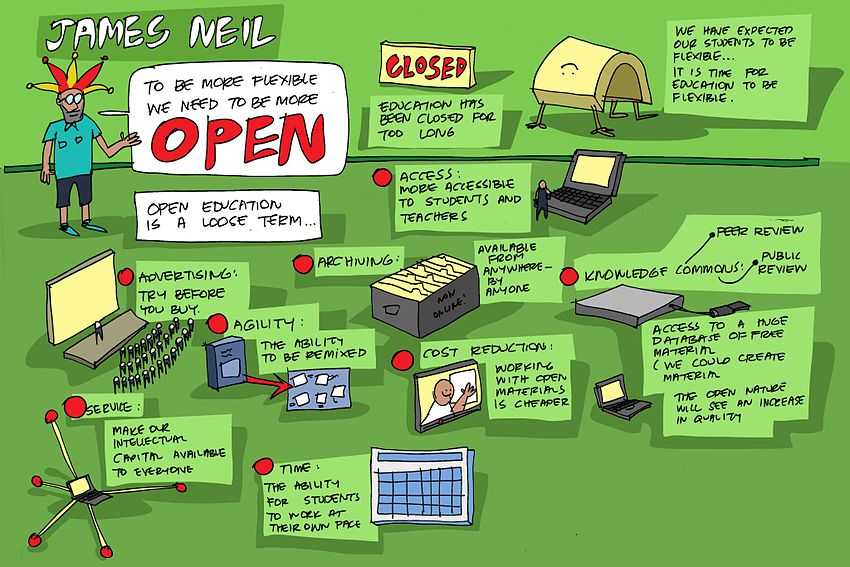 JAMES NEIL
TO BE MORE FLEXIBLE
WE NEED TO BE MORE
OPEN
CLOSED
EDUCATION HAS
BEEN CLOSED FOR
TOO LONG
WE HAVE EXPECTED
OUR STUDENTS TO BE
FLEXIBLE...
IT IS TIME FOR
EDUCATION TO BE
FLEXIBLE.
OPEN EDUCATION
IS A LOOSE TERM...
ACCESS:
MORE ACCESSIBLE
TO STUDENTS AND
TEACHERS
ADVERTISING:
TRY BEFORE
YOU BUY.
ARCHIVING:
NOW
ONLINE!
AVAILABLE
FROM
ANYWHERE-
BY
ANYONE
KNOWLEDGE COMMONS:
PEER REVIEW
PUBLIC
REVIEW
ACCESS TO A HUGE
DATABASE OF FREE
MATERIAL
(WE COULD CREATE
MATERIAL
THE OPEN NATURE
WILL SEE AN INCREASE
IN QUALITY
AGILITY:
THE ABILITY
TO BE REMIXED
COST REDUCTION:
WORKING
WITH OPEN
MATERIALS
IS CHEAPER
SERVICE:
MAKE OUR
INTELLECTUAL
CAPITAL AVAILABLE
TO EVERYONE
TIME:
THE ABILITY
FOR STUDENTS
TO WORK AT
THEIR OWN PACE